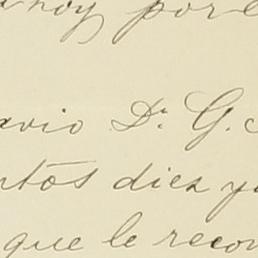 hoy por
avio Dr. G.
ntos diez y
que le recon